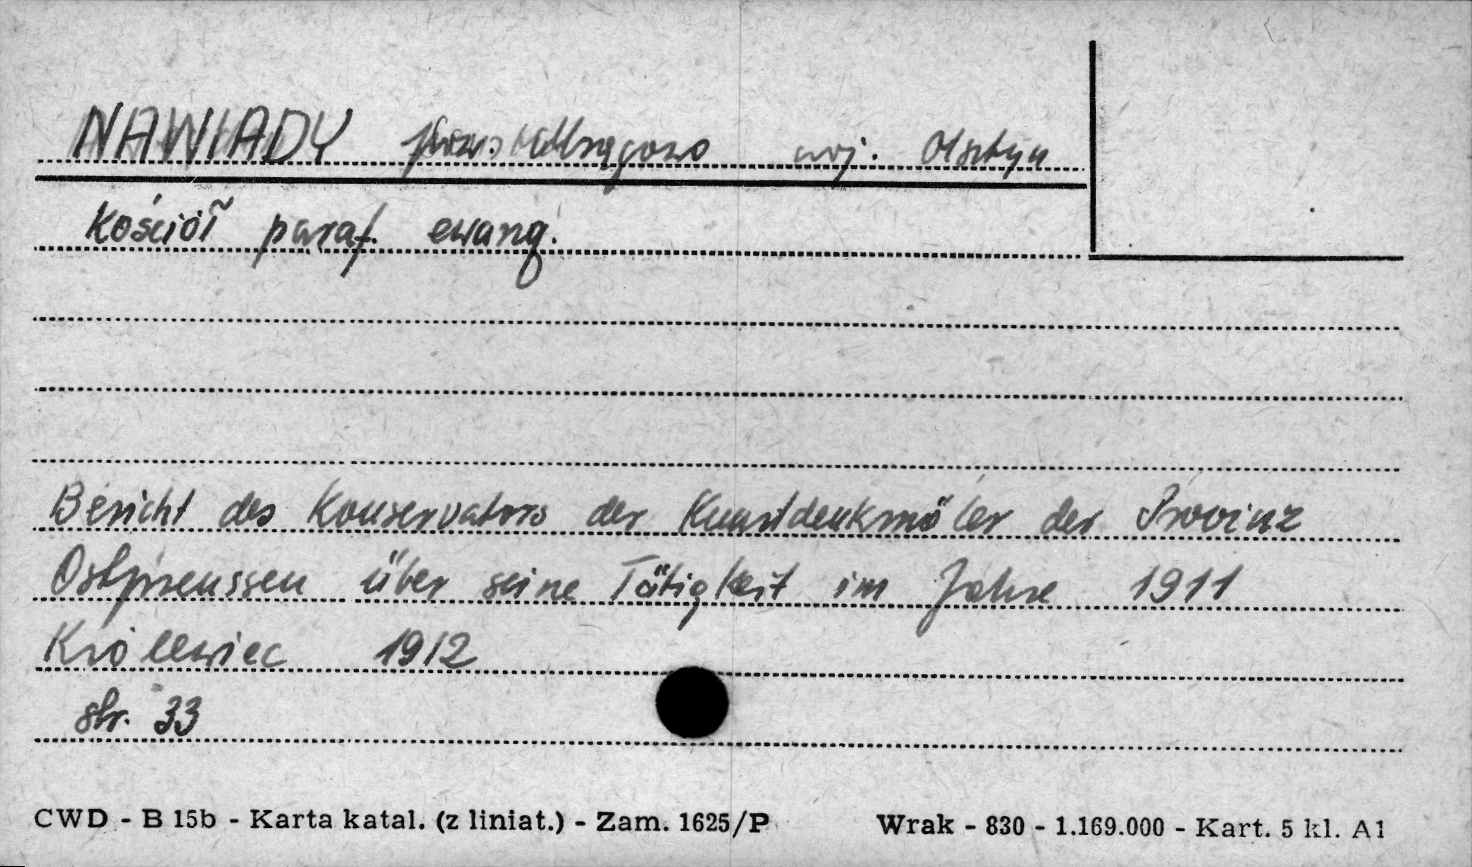 NAWIADY pow. Mrągowo woj. Olsztyn
kościół paraf. ewang.
Bericht des Konservators der Kunstdenkmäler der Provinz
Ostpreussen über seine Tätigkeit im Jahre 1911
Królewiec 1912
str. 33
CWD - B 15b - Karta katal. (z liniat.) - Zam. 1625/P Wrak - 830 - 1.169.000 - Kart. 5 kl. A1